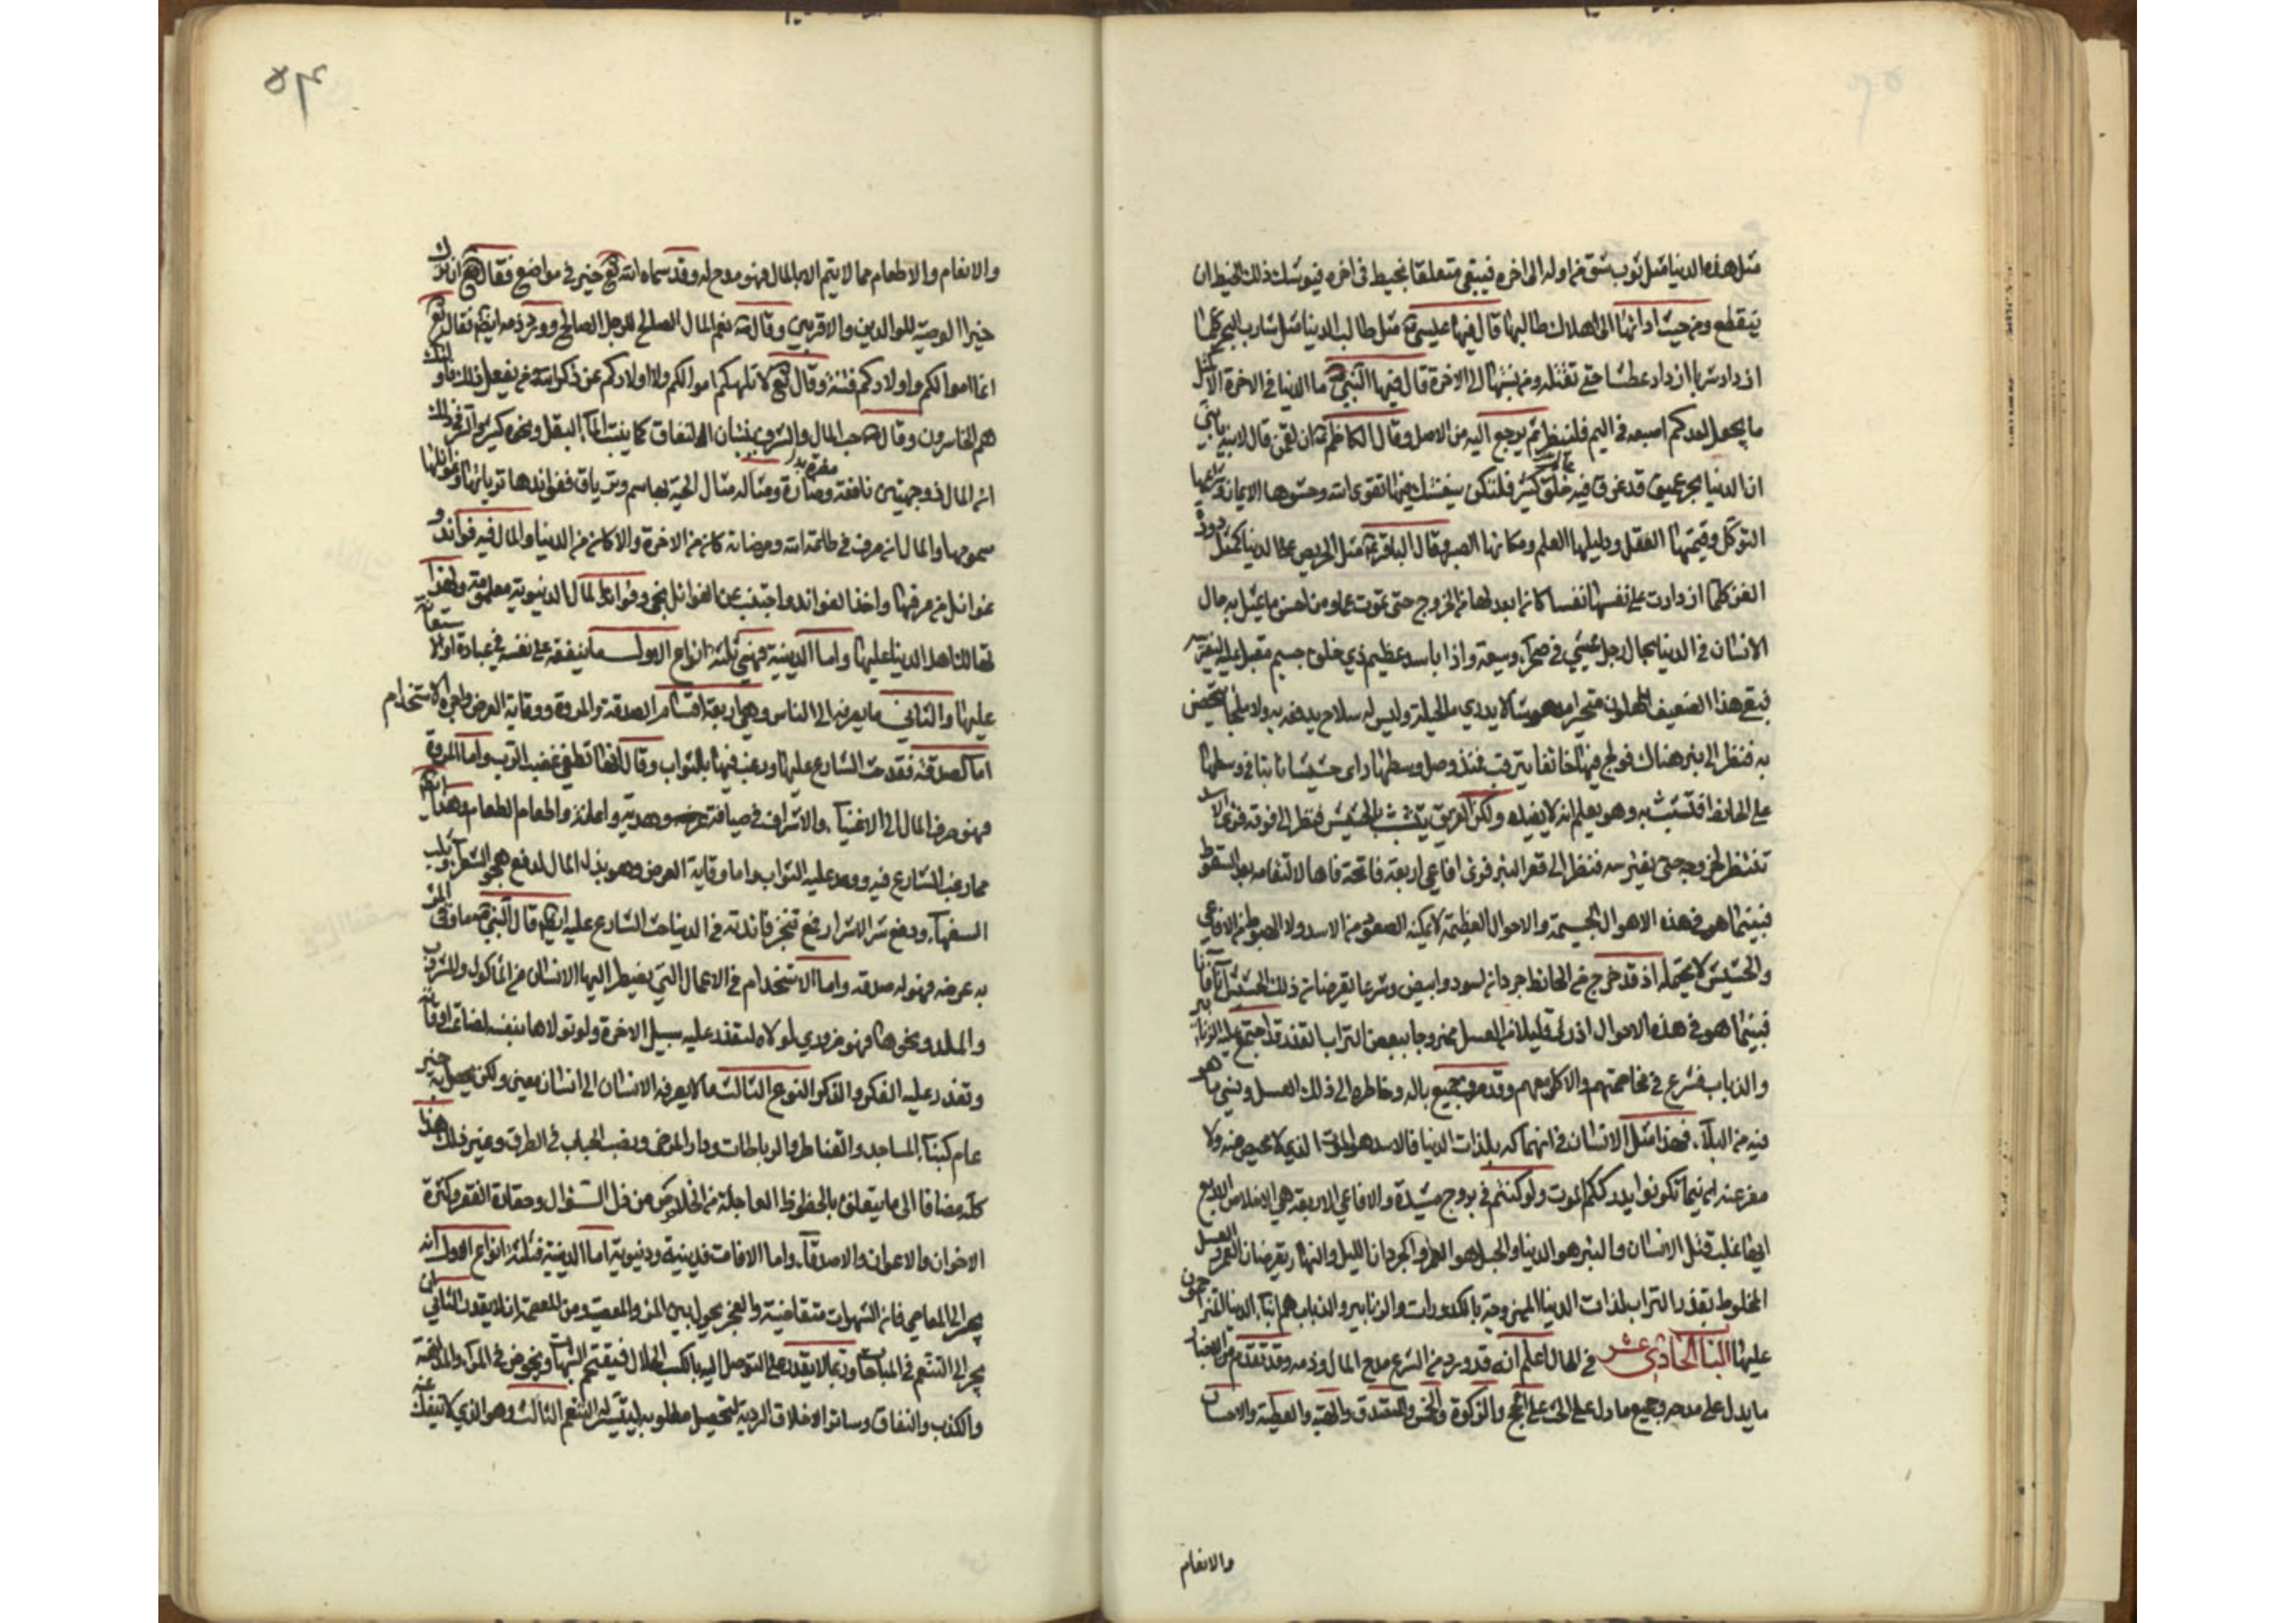 مثل هذه الدنيا مثل ثوب شق من اوله الى اخره فيبقى متعلقا بخيط فى اخره فيوشك ذلك الخيط ان
ينقطع ومن حيث اداتها الى اهلاك طالبها قال فيها عيسى ع مثل طالب الدنيا مثل شارب البحر كلما
ازداد شربا ازداد عطشا حتى تقتله ومن نسبتها الى الاخرة قال فيها النبي ص ما الدنيا فى الاخرة الا مثل
ما يجعل احدكم اصبعه فى اليم فلينظر بم يرجع اليه من الاصل وقال الكاظم ع ان لقمن قال لابنه يا بني
ان الدنيا بحر عميق قد غرق فيه خلق كثير فلتكن سفينتك فيها تقوى الله وحشوها الايمان وشراعها
التوكل وقيمتها العقل ودليلها العلم وسكانها الصبر وقال الباقر ع مثل الحريص على الدنيا كمثل دودة
القز كلما ازدادت على نفسها لفا كان ابعد لها من الخروج حتى تموت غما ومن احسن ما يمثل به حال
الانسان فى الدنيا بحال رجل عشي فى صحراء وسيعة واذا باسد عظيم ذي خلق جسيم مقبل عليه ليفترسه
فبقى هذا الضعيف متحيرا لا يدري ما الحيلة وليس له سلاح يدفعه به ولا ملجأ يتحصن
به فنظر الى بئر هناك فولج فيها خائفا يترقب فمذ وصل وسطها راى حشيشا نابتا فى وسطها
على الحائط فتشبث به وهو يعلم انه لا يفيده ولكن الغريق يتشبث بالحشيش فنظر الى فوقه فراى الاسد
تنتظر خروجه حتى يفترسه فنظر الى قعر البئر فراى افاعي اربعة فاتحة فاها لالتقامه بعد السقوط
فبينما هو فى هذه الاهوال الجسيمة والاحوال العظيمة لا يمكنه الصعود من الاسد ولا الهبوط من الافاعي
والحشيش لا يحتمله اذ قد خرج من الحائط جرذان اسود وابيض وشرعا يقرضان ذلك الحشيش آنا فآنا
فبينما هو فى هذه الاحوال اذ راى قليلا من العسل ممزوجا ببعض التراب القذر قد اجتمع عليه الزنابير
والذباب فشرع فى مخاصمتهم والاكل معهم وقد صرف جميع باله وخاطره الى ذلك العسل ونسي ما هو
فيه من البلاء فهذا مثل الانسان فى انهماكه بلذات الدنيا فالاسد هو الموت الذي لا محيص عنه ولا
مفر عنه اينما تكونوا يدرككم الموت ولو كنتم فى بروج مشيدة والافاعي الاربعة هي الاخلاط الاربع
ايها غلب قتل الانسان والبئر هو الدنيا والحبل هو العمر والجرذان الليل والنهار يقرضان العمر والعسل
المخلوط بقذر التراب لذات الدنيا الممزوجة بالكدورات والزنابير والذباب هم ابناء الدنيا المتزاحمون
عليها الباب الحادي عشر فى المال اعلم انه قد ورد من الشرع مدح المال وذمه وقد تقدم
ما يدل على مدحه وجميع ما دل على الحث على الحج والزكوة والخمس والتصدق والهبة والعطية والاحسان
والانعام
٥٣
والانعام والاطعام مما لا يتم الا بالمال فهو مدح له وقد سماه الله تع خير فى مواضع فقال تع ان ترك
خيرا الوصية للوالدين والاقربين وقال ص نعم المال الصالح للرجل الصالح وورد ذمه ايضا فقال تع
انما اموالكم واولادكم فتنة وقال تع لا تلهكم اموالكم ولا اولادكم عن ذكر الله ومن يفعل ذلك فاولئك
هم الخاسرون وقال ص حب المال والشرف ينبتان النفاق كما ينبت الماء البقل ونحوه كثير والسر فى ذلك
ان المال ذو جهتين نافعة وضارة ومثاله مثال الحية بها سم وترياق ففوائدها ترياقها وغوائلها
سمومها والمال ان صرف فى طاعة الله ومرضاته كان من الاخرة والا كان من الدنيا والمال فيه فوائد و
غوائل من عرفها واخذ الفوائد واجتنب عن الغوائل نجى وفوائد المال الدنيوية معلومة ولهذا
تهالك اهل الدنيا عليها واما الدينية فهي ثلثة انواع الاول ما ينفقه على نفسه فى عبادة او استعانة
عليها والثاني ما يصرفه الى الناس وهي اربعة اقسام الصدقة والمروة ووقاية العرض واجرة الاستخدام
اما الصدقة فقد حث الشارع عليها ورغب فيها بالثواب وقال انها تطفئ غضب الرب واما المروة
فهو صرف المال الى الاغنياء والاشراف فى ضيافة وهدية واعانة واطعام الطعام وهذا ايضا
مما رغب الشارع فيه ووعد عليه الثواب واما وقاية العرض وهو بذل المال لدفع هجو الشعراء وثلب
السفهاء ودفع شر الاشرار فمع تنجز فائدته فى الدنيا حث الشارع عليه ايضا قال النبي ص ما وقى المرء
به عرضه فهو له صدقة واما الاستخدام فى الاعمال التي يضطر اليها الانسان من المأكول والمشروب
والملبس ونحوها فهو ضروري لو لاه لتعذر عليه سبيل الاخرة ولو تولاها بنفسه لضاعت اوقاته
وتعذر عليه الفكر والذكر النوع الثالث ما لا يصرفه الانسان الى انسان معين ولكن يحصل به خير
عام كبناء المساجد والقناطر والرباطات ودار المرضى ونصب الحباب فى الطرق وغير ذلك هذا
كله مضافا الى ما يتعلق بالحظوظ العاجلة من الخلاص من ذل السؤال وحقارة الفقر وكثرة
الاخوان والاعوان والاصدقاء واما الافات فدينية ودنيوية اما الدينية فثلثة انواع الاول انه
يجر الى المعاصي فان الشهوات متقاضية والعجز يحول بين المرء والمعصية ومن العصمة ان لا يقدر الثاني
يجر الى التنعم فى المباحات وربما لا يقدر على التوصل اليه بالكسب الحلال فيقتحم الشبهات ويخوض فى المراء والمداهنة
والكذب والنفاق وسائر الاخلاق الردية لتحصيل مطلوبه ليتيسر له التنعم الثالث وهو الذي لا ينفك عنه